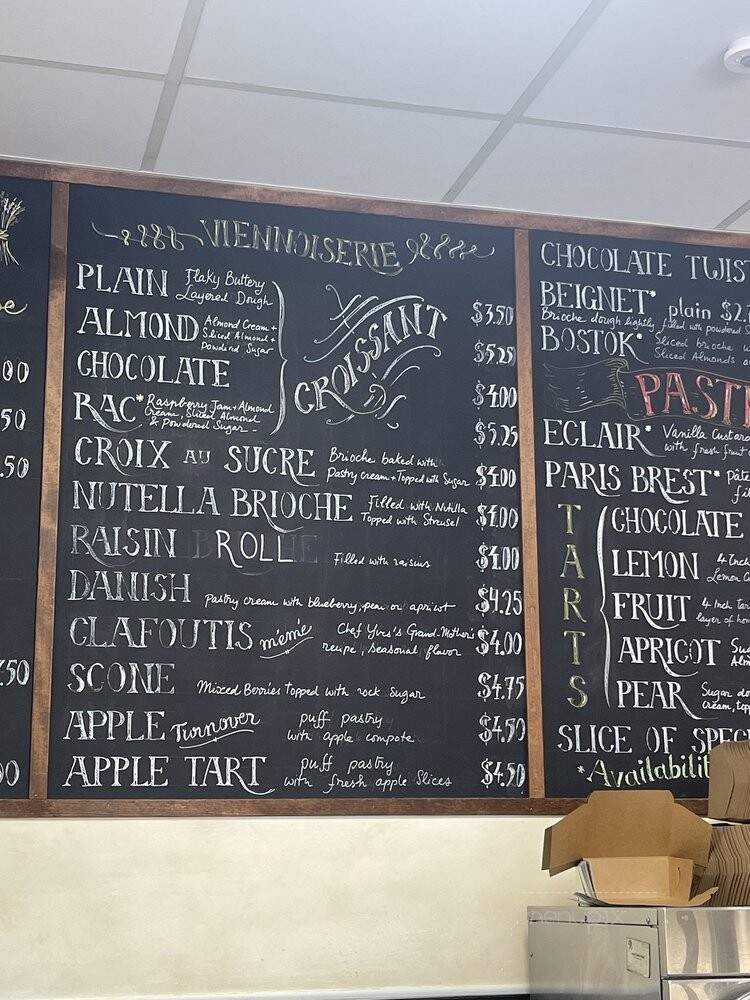 VIENNOISERIE
PLAIN Flaky Buttery
Layered Dough
$3.50
ALMOND Almond Cream +
Sliced Almond +
Powdered Sugar
$5.25
CROISSANT
CHOCOLATE
$4.00
RAC* Raspberry Jam + Almond
Cream, Sliced Almond
& Powdered Sugar
$5.25
CROIX AU SUCRE Brioche baked with
Pastry cream + Topped with Sugar
$4.00
NUTELLA BRIOCHE Filled with Nutella
Topped with Streusel
$4.00
RAISIN ROLL Filled with raisins
$4.00
DANISH Pastry cream with blueberry, pear or apricot
$4.25
CLAFOUTIS mémé Chef Yves's Grand-Mother's
recipe, seasonal flavor
$4.00
SCONE Mixed Berries topped with rock sugar
$4.75
APPLE Turnover puff pastry
with apple compote
$4.50
APPLE TART puff pastry
with fresh apple slices
$4.50
CHOCOLATE TWIST
BEIGNET* plain
Brioche dough lightly filled with powdered
BOSTOK* Sliced brioche
Sliced Almonds
ECLAIR* Vanilla Custard
with fresh fruit
PARIS BREST*
TARTS
CHOCOLATE
LEMON 4 Inch
Lemon
FRUIT 4 Inch
layer of
APRICOT
PEAR Sugar
cream,
SLICE OF
00
50
.50
.50